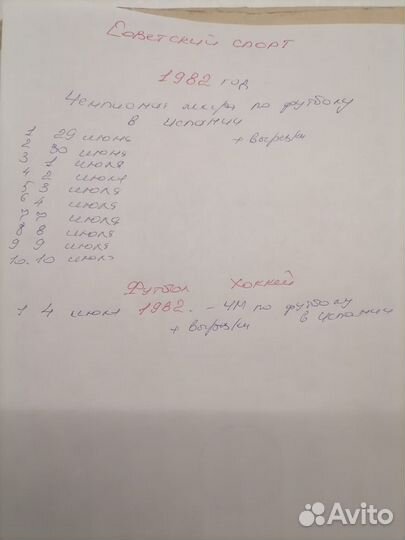 Советский спорт
1982 год
Чемпионат мира по футболу
в Испании
1 29 июня + вырезки
2 30 июня
3 1 июля
4 2 июля
5 3 июля
6 4 июля
7 7 июля
8 8 июля
9 9 июля
10. 10 июль
Футбол Хоккей
1 4 июля 1982. - ЧМ по футболу
+ вырезки в Испании
Avito